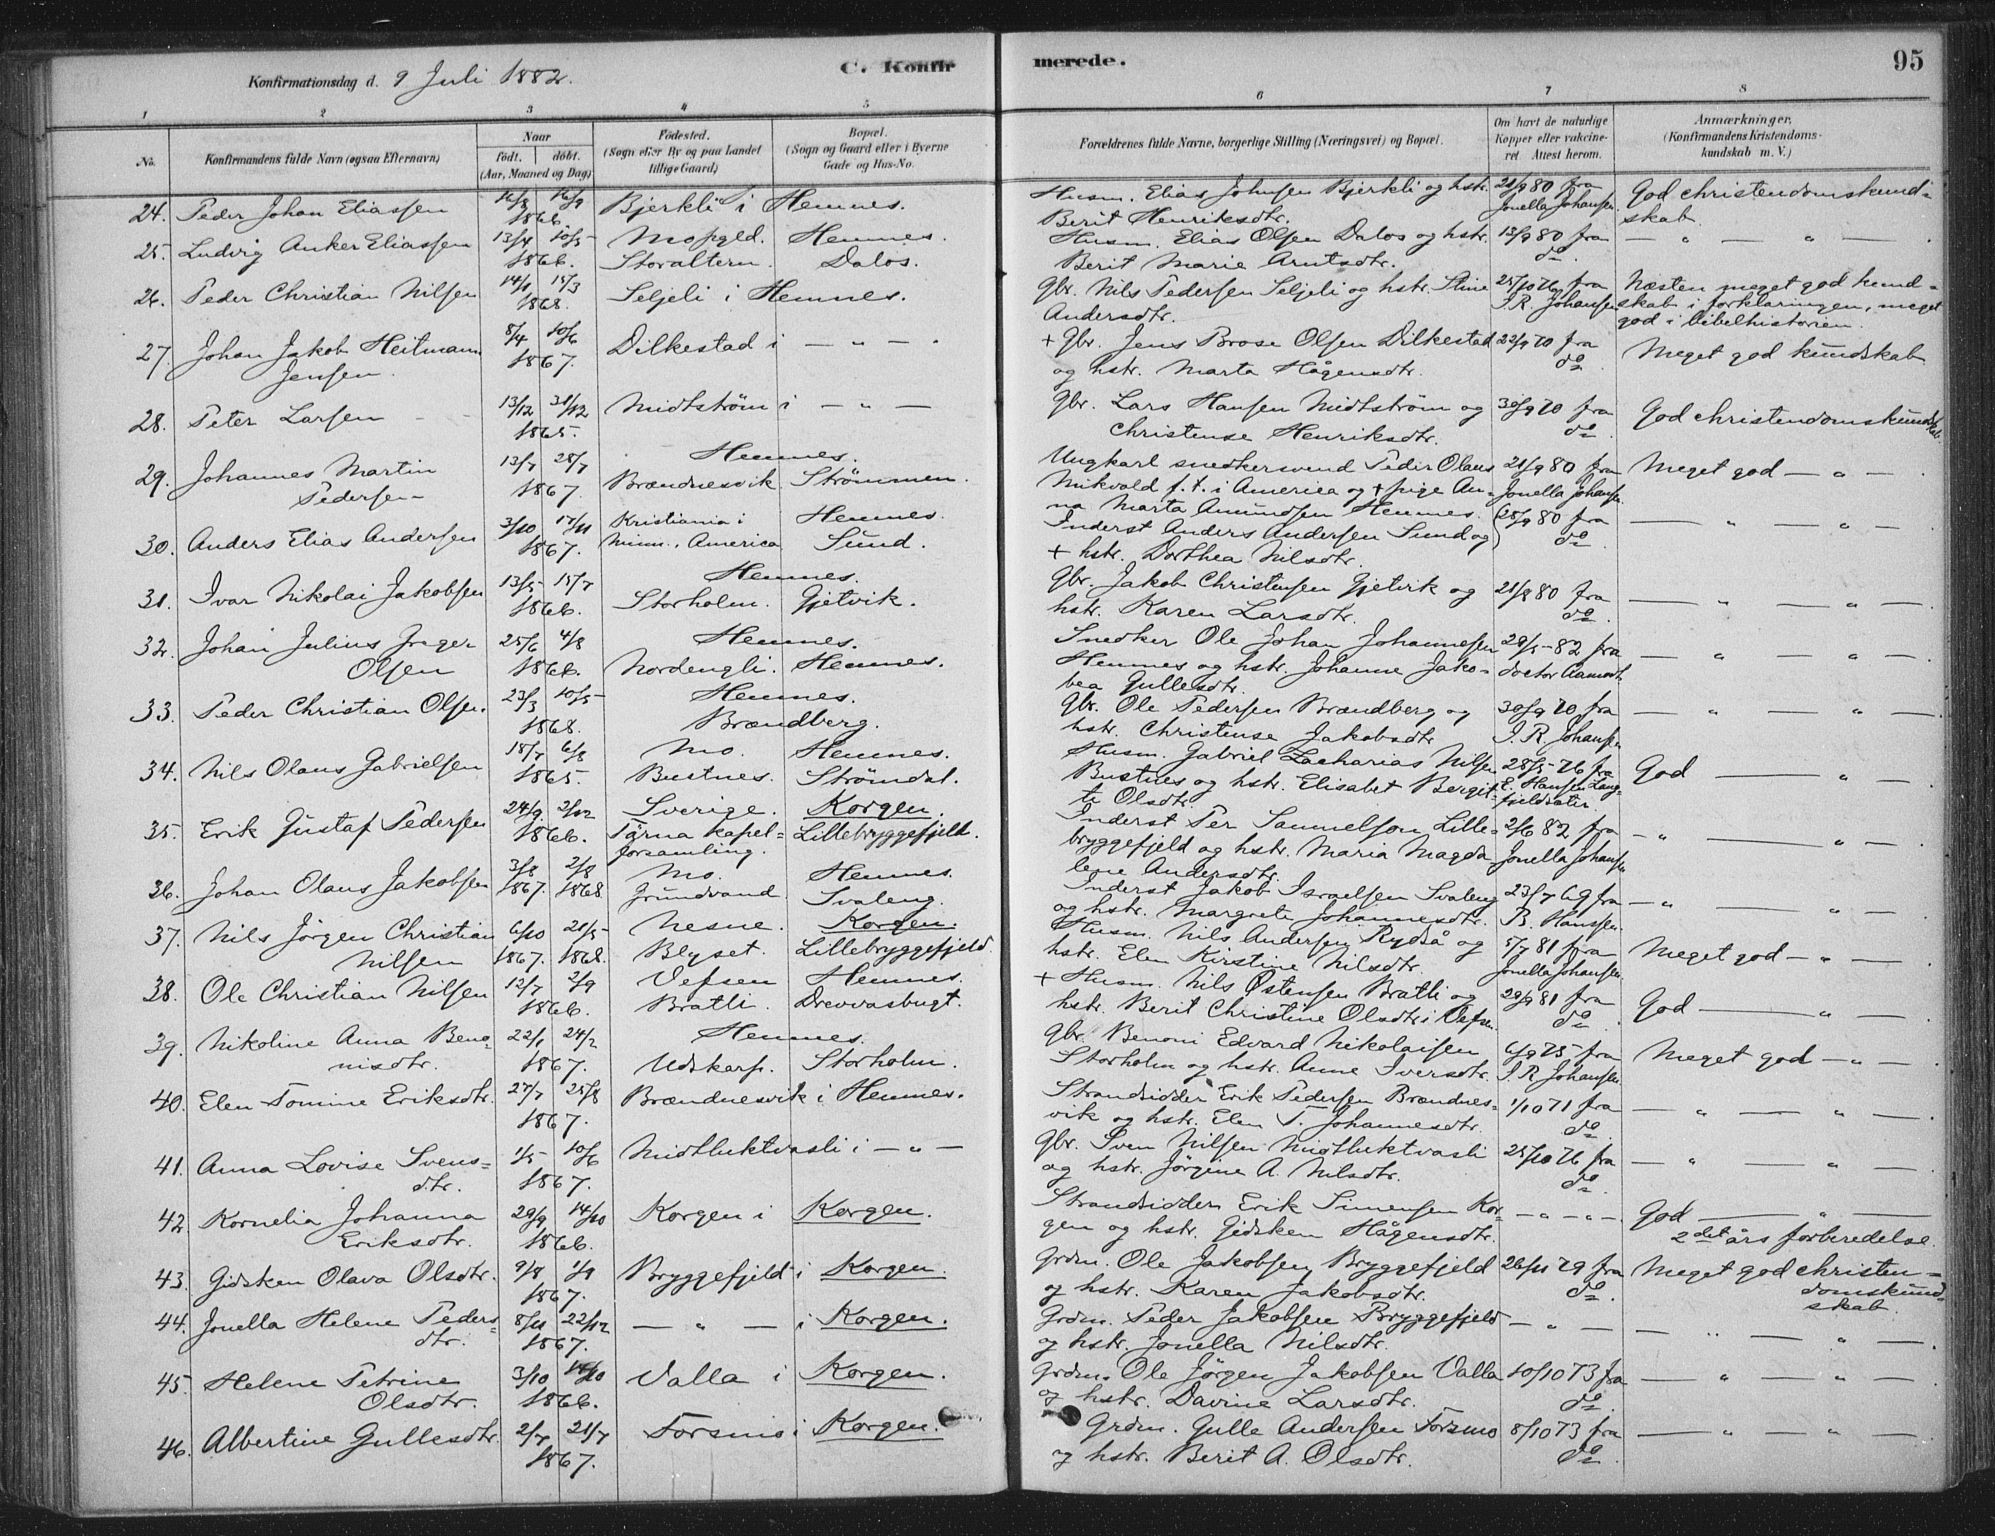 Konfirmationsdag d. 9 Juli 1882.
C. Konfir
merede.
95
1 2 3 4 5 6 7 8
No.
Konfirmandens fulde Navn (ogsaa Efternavn)
Naar
födt. döbt.
(Aar, Maaned og Dag)
Födested.
(Sogn eller By og paa Landet
tillige Gaard)
Bopæl.
(Sogn og Gaard eller i Byerne
Gade og Hus-No.
Forældrenes fulde Navne, borgerlige Stilling (Næringsvei) og Bopæl.
Om havt de naturlige
Kopper eller vakcine-
ret. Attest herom.
Anmærkninger.
(Konfirmandens Kristendoms-
kundskab m. V.)
24. Peder Johan Eliassen 1866. Bjerkli i Hemnes. Husm. Elias Johnsen Bjerkli og hstr. Berit Henriksdtr. 21/9 80 fra Jonella Johansen God christendomskundskab
25. Ludvig Anker Eliassen 13/4 10/5 1866. Mo pgld. Storaltern. Hemnes. Dalos. Husm. Elias Olsen Dalos og hstr. Berit Marie Arntsdtr. 13/9 80 fra do — " — " — .
26. Peder Christian Nilsen 14/1 15/3 1868. Seljeli i Hemnes. Gbr. Nils Pedersen Seljeli og hstr. Stine Andersdtr. 25/10 76 fra I. R. Johansen Næsten meget god kundskab i forklaringen, meget god i bibelhistorien.
27. Johan Jakob Heitmann Jensen. 8/4 10/6 1867. Dilkestad i — " — . + Gbr. Jens Brose Olsen Dilkestad og hstr. Marta Hågensdtr. 22/9 70 fra do Meget god kundskab
28. Peter Larsen 13/12 31/12 1865. Midtström i — " — Gbr. Lars Hansen Midtström og Christense Henriksdtr. 30/9 70 fra do. God christendomskundskab.
29. Johannes Martin Pedersen 13/7 28/7 1867. Hemnes. Brændnesvik Strömmen. Ungkarl snedkersvend Peder Olaus Mikvold f. t. i America og + pige Anna Marta Amundsen Hemnes. 21/9 80 fra Jonella Johansen. Meget god — " — .
30. Anders Elias Andersen 3/10 17/11 1867. Kristiania i Minn., America Hemnes. Sund. Inderst Anders Andersen Sund og + hstr. Dorthea Nilsdtr. 28/9 80 fra do. — " — " — .
31. Ivar Nikolai Jakobsen 13/5 15/7 1866. Hemnes. Storholm. Gjetvik. Gbr. Jakob Christensen Gjetvik og hstr. Karen Larsdtr. 21/9 80 fra do. — " — " — .
32. Johan Julius Inger Olsen 25/6 4/8 1866. Hemnes. Nordengli. Hemnes. Snedker Ole Johan Johannesen Hemnes og hstr. Johanne Jakobea Gullesdtr. 29/5-82 fra doctor Aamodt. — " — " — .
33. Peder Christian Olsen. 23/3 10/5 1868. Hemnes. Brændberg. Gbr. Ole Pedersen Brændberg og hstr. Christense Jakobsdtr. 30/9 70 fra I. R. Johansen — " — " — .
34. Nils Olaus Gabrielsen 18/7 6/8 1865. Mo. Bustnes. Hemnes. Strömdal. Husm. Gabriel Zacharias Nilsen Bustnes og hstr. Elisabet Bergitte Olsdtr. 28/5-76 fra E. Hansen Langfjeldsæter. God — " — .
35. Erik Gustaf Pedersen 24/9 2/12 1866. Sverige. Tärna kapelforsamling. Korgen. Lillebryggefjeld. Inderst Per Samuelson Lillebryggefjeld og hstr. Maria Magdalene Andersdtr. 2/6 82 fra Jonella Johansen — " — " — .
36. Johan Olaus Jakobsen 3/8 1867. 2/8 1868. Mo. Grundvand. Hemnes. Svaleng. Inderst Jakob Israelsen Svaleng og hstr. Margrete Johannesdtr. 23/7 69 fra B. Hanssen. — " — " — .
37. Nils Jörgen Christian Nilsen 6/10 1867. 21/5 1868. Nesne. Blyset. Korgen. Lillebryggefjeld. Husm. Nils Andersen Rydså og hstr. Elen Kirstine Nilsdtr. 5/7 81 fra Jonella Johansen. Meget god — " — .
38. Ole Christian Nilsen 12/7 2/9 1866. Vefsen Bratli. Hemnes. Drevvasbugt. + Husm. Nils Östensen Bratli og hstr. Berit Christine Olsdtr. i Vefsn. 29/9 81 fra do. God — " — .
39. Nikoline Anna Benonisdtr. 22/1 24/2 1867. Hemnes. Udskarp. Storholm. Gbr. Benoni Edvard Nikolaisen Storholm og hstr. Anne Iversdtr. 6/9 75 fra I. R. Johansen. Meget god — " — .
40. Elen Tomine Eriksdtr. 27/7 25/8 1867. Brændnesvik i Hemnes. Strandsidder Erik Pedersen Brændnesvik og hstr. Elen T. Johannesdtr. 1/10 71 fra do. — " — " — .
41. Anna Lovise Svensdtr. 1/5 10/6 1867. Midtluktvasli i — " — Gbr. Sven Nilsen Midtluktvasli og hstr. Jörgine A. Nilsdtr. 25/10 76 fra do. — " — " — .
42. Kornelia Johanna Eriksdtr. 29/9 14/10 1866. Korgen i Korgen. Strandsidder Erik Simensen Korgen og hstr. Gidsken Hågensdtr. — " — " — God — " — 2det års forberedelse.
43. Gidsken Olava Olsdtr. 9/8 1/9 1867. Bryggefjeld i Korgen. Grdm. Ole Jakobsen Bryggefjeld og hstr. Karen Jakobsdtr. 26/11 79 fra do. Meget god christendomskundskab.
44. Jonella Helene Pedersdtr. 8/11 22/12 1867. — " — i Korgen. Grdm. Peder Jakobsen Bryggefjeld og hstr. Jonella Nilsdtr. — " — — " — " — .
45. Helene Petrine Olsdtr. 3/10 14/10 1866. Valla i Korgen. Grdm. Ole Jörgen Jakobsen Valla og hstr. Davine Larsdtr. 10/10 73 fra do. — " — " — .
46. Albertine Gullesdtr. 2/7 21/7 1867. Forsmo i Korgen. Grdm. Gulle Andersen Forsmo og hstr. Berit A. Olsdtr. 8/10 73 fra do. — " — " — .